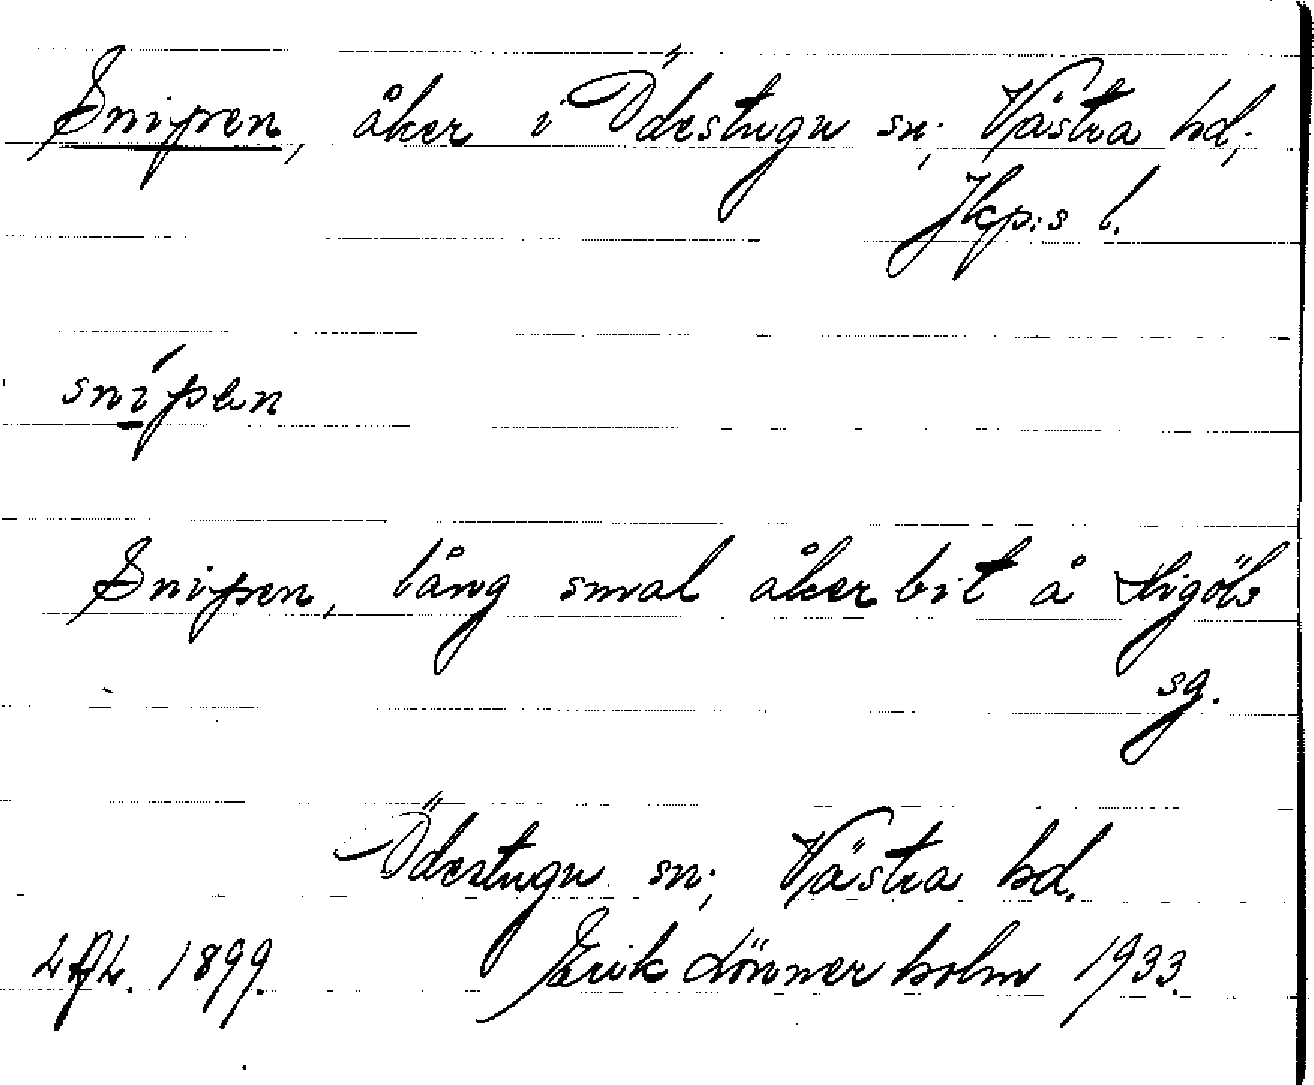 Snipen, åker i Ödestugu sn; Västra hd;
Jkp:s l.
snípen
Snipen, lång smal åkerbit å
sg.
Ödestugu sn; Västra hd.
1899. Erik Lönnerholm 1933.